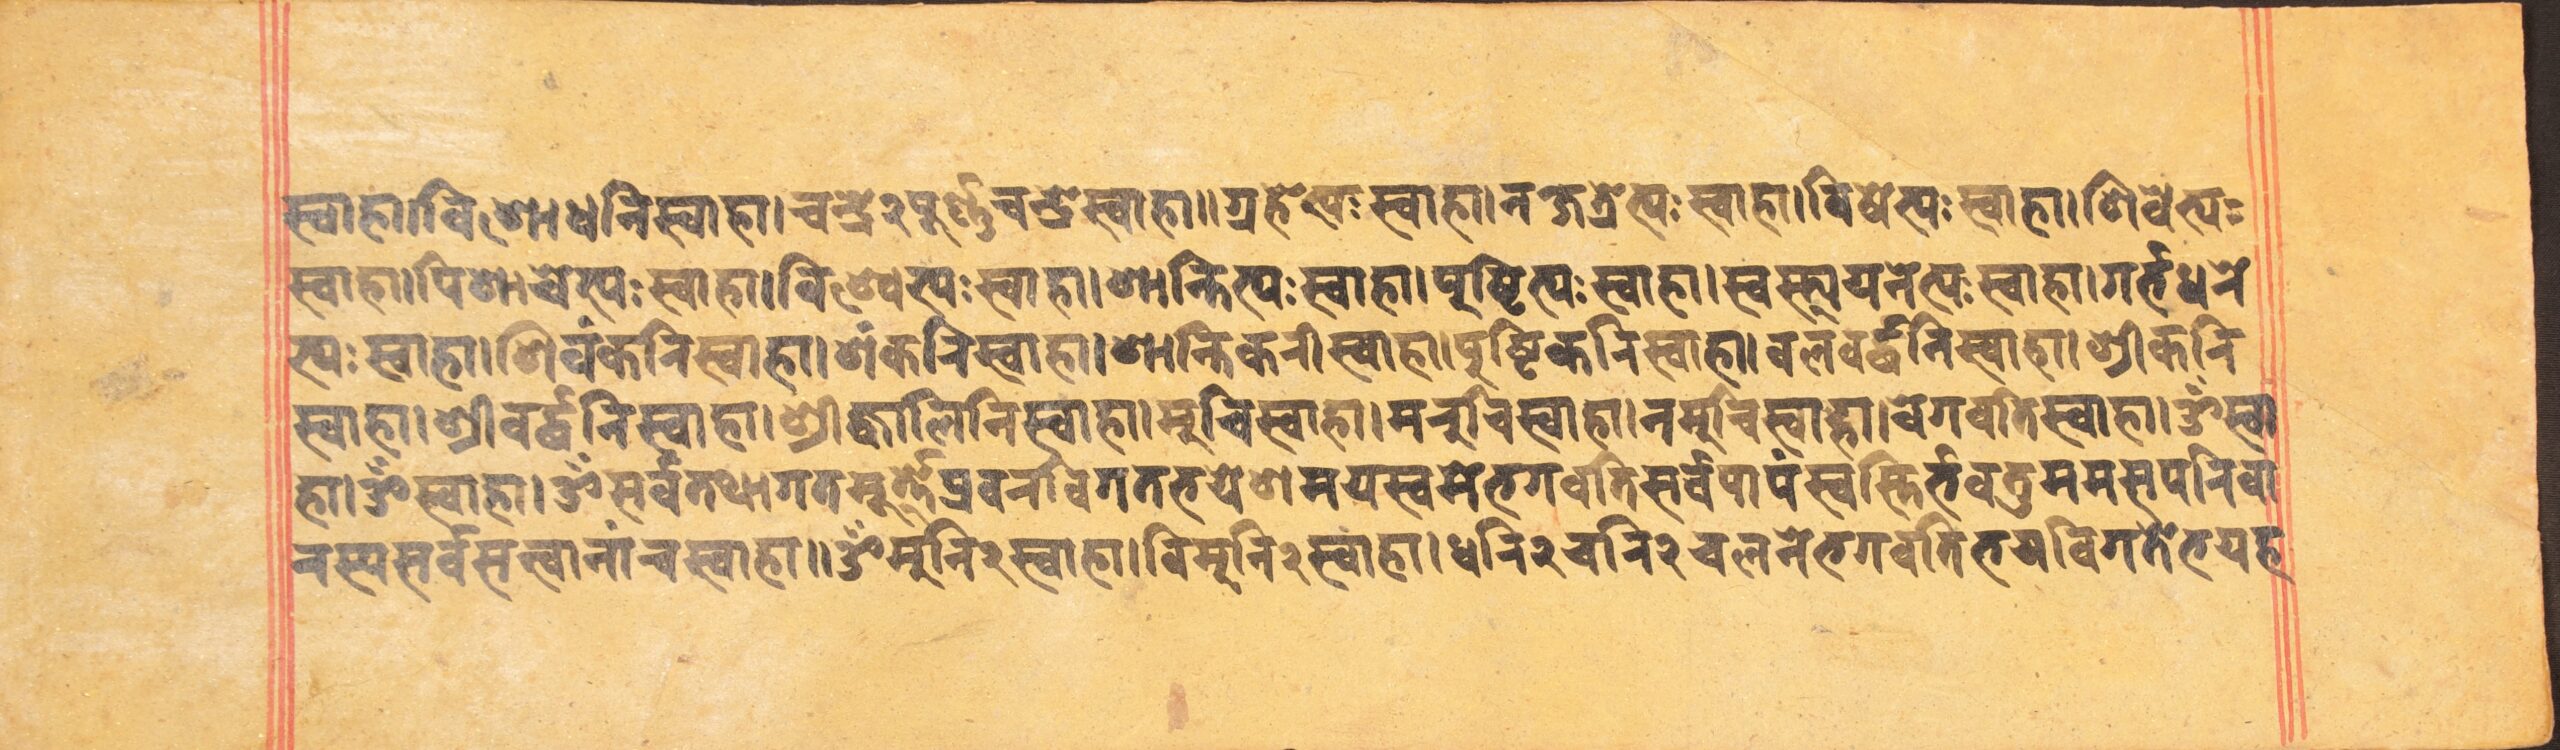 स्वाहा।विशोधनिस्वाहा।चन्द्रे२पूर्ण्णचन्द्रेस्वाहा॥ग्रहेभ्यःस्वाहा।नक्षत्रेभ्यःस्वाहा।विषेभ्यःस्वाहा।शिवेभ्यः
स्वाहा।पिशाचेभ्यःस्वाहा।विश्वेभ्यःस्वाहा।शान्तिभ्यःस्वाहा।पुष्टिभ्यःस्वाहा।स्वस्त्ययनेभ्यःस्वाहा।गर्भधरे
भ्यःस्वाहा।शिवंकरिस्वाहा।शंकरिस्वाहा।शान्तिकरीस्वाहा।पुष्टिकरिस्वाहा।बलवर्द्धनिस्वाहा।श्रीकरि
स्वाहा।श्रीवर्द्धनिस्वाहा।श्रीज्वालिनिस्वाहा।मुचिस्वाहा।मरुचिस्वाहा।नमुचिस्वाहा।वेगवतिस्वाहा।ॐस्वा
हा।ॐस्वाहा।ॐसर्वतथागतमूर्त्तेप्रवरविगतभयेशमयस्वमेभगवतिसर्वपापंस्वस्तिर्भवतुममसपरिवा
रस्यसर्वसत्त्वानांचस्वाहा॥ॐमुनि२स्वाहा।विमुनि२स्वाहा।धरि२चरि२चलनेभगवतिभयविगतेभयह